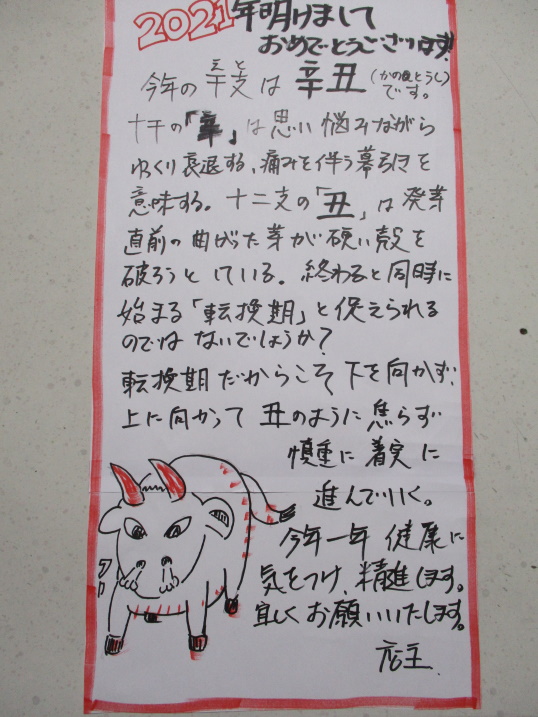 2021年明けまして
おめでとうございます!!
今年の干支は辛丑(かのとうし)です。
えと
十干の「辛」は思い悩みながら
ゆっくり衰退する、痛みを伴う幕引きを
意味する。十二支の「丑」は発芽
直前の曲がった芽が硬い殻を
破ろうとしている。終わると同時に
始まる「転換期」と捉えられる
のではないでしょうか?
転換期だからこそ下を向かず、
上に向かって丑のように焦らず
慎重に着実に
進んでいく。
今年一年健康に
気をつけ、精進します。
宜しくお願いいたします。
店主